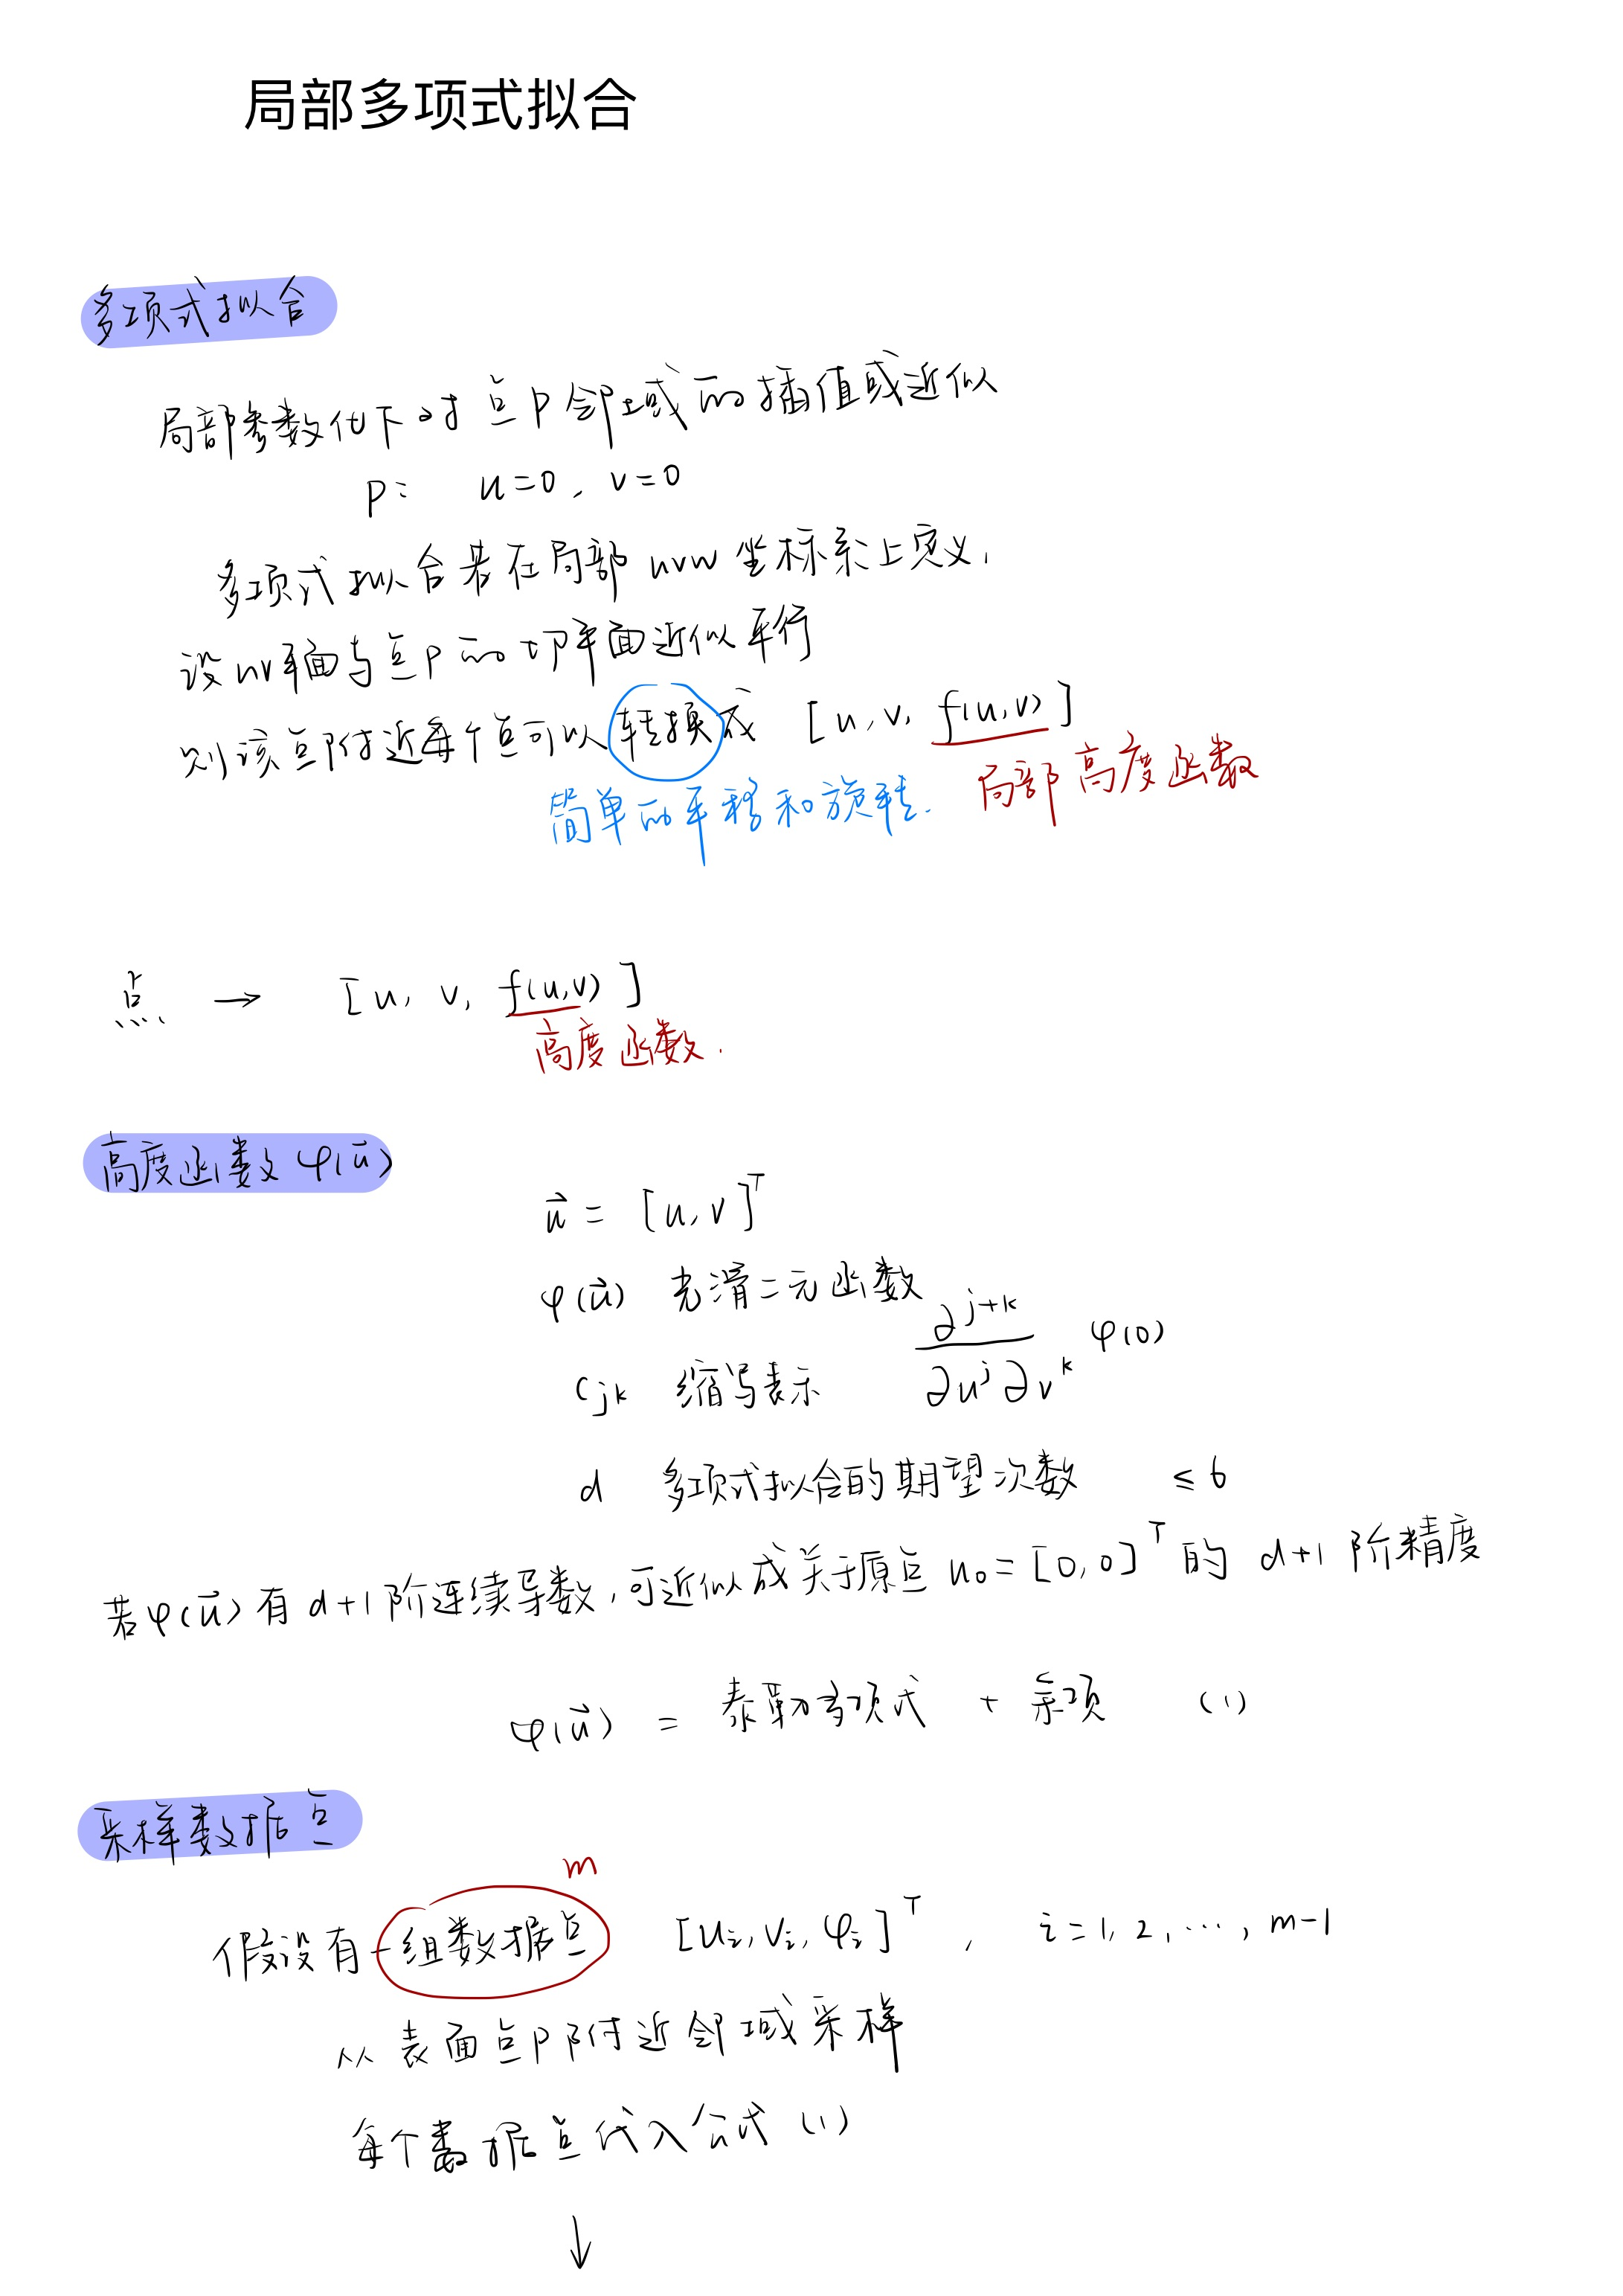 局部多项式拟合
多项式拟合
局部参数化下对点P邻域的插值或近似
P: u=0, v=0
多项式拟合若在局部 uvw 坐标系上定义,
设uv平面与点P的切平面近似平行
则该点附近每个点可以转换成 [u, v, f(u,v)]
简单的平移和旋转. 局部高度函数
点 → [u, v, f(u,v)]
高度函数.
高度函数 φ(u⃗)
u⃗ = [u, v]ᵀ
φ(u⃗) 光滑二元函数
cⱼₖ 缩写表示 ∂ʲ⁺ᵏ/∂uʲ∂vᵏ φ(0)
d 多项式拟合的期望次数 ≤6
若φ(u⃗)有d+1阶连续导数,可近似成关于原点 u₀=[0,0]ᵀ的 d+1 阶精度
φ(u⃗) = 泰勒多项式 + 余项 (1)
采样数据点
m
假设有一组数据点 [uᵢ, vᵢ, φᵢ]ᵀ , i=1, 2, ⋯, m-1
从表面点P附近邻域采样
每个数据点代入公式 (1)
↓